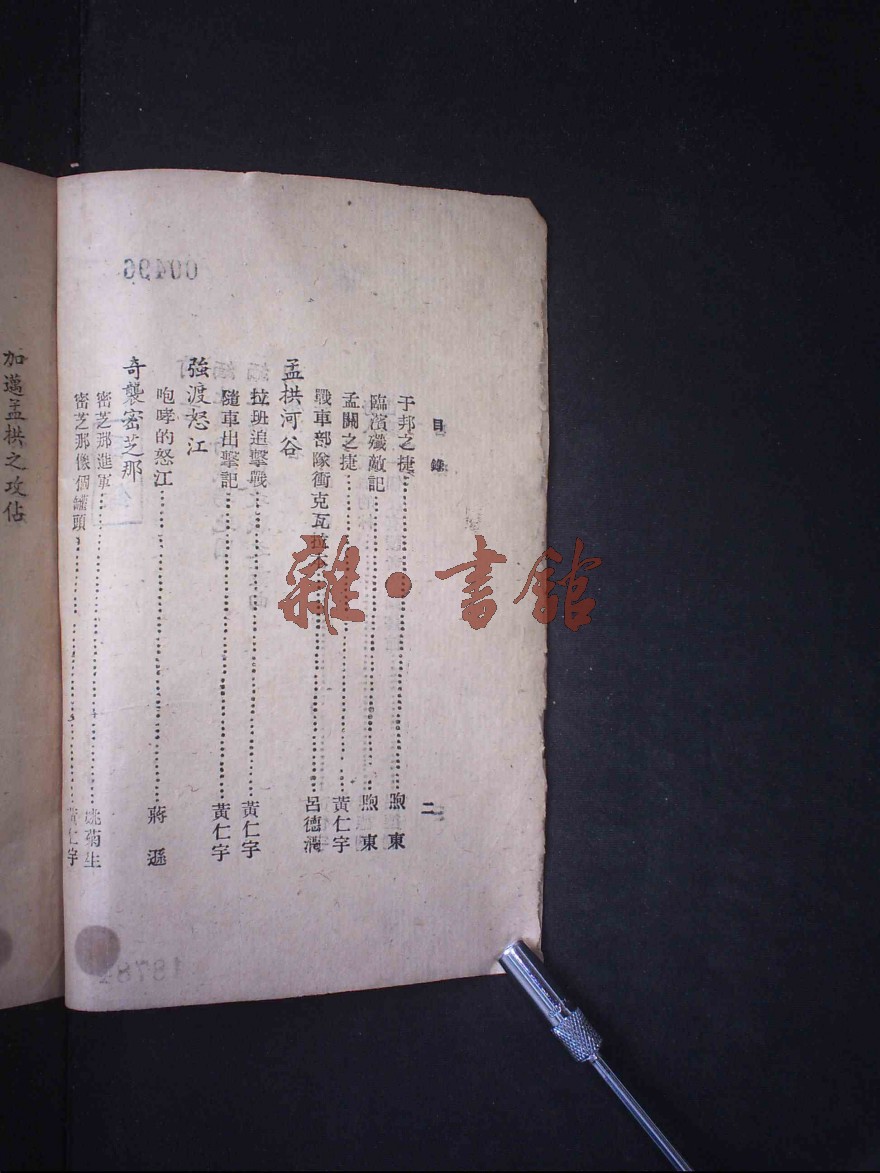 目錄 二
于邦之捷……煦東
臨濱殲敵記……煦東
孟關之捷……黃仁宇
戰車部隊衝克瓦拉本……呂德潤
孟拱河谷
拉班追擊戰……黃仁宇
隨車出擊記……黃仁宇
強渡怒江
咆哮的怒江……蔣遜
奇襲密芝那
密芝那進軍……姚菊生
密芝那像個罐頭……黃仁宇
加邁孟拱之攻佔
雜·書館
00496